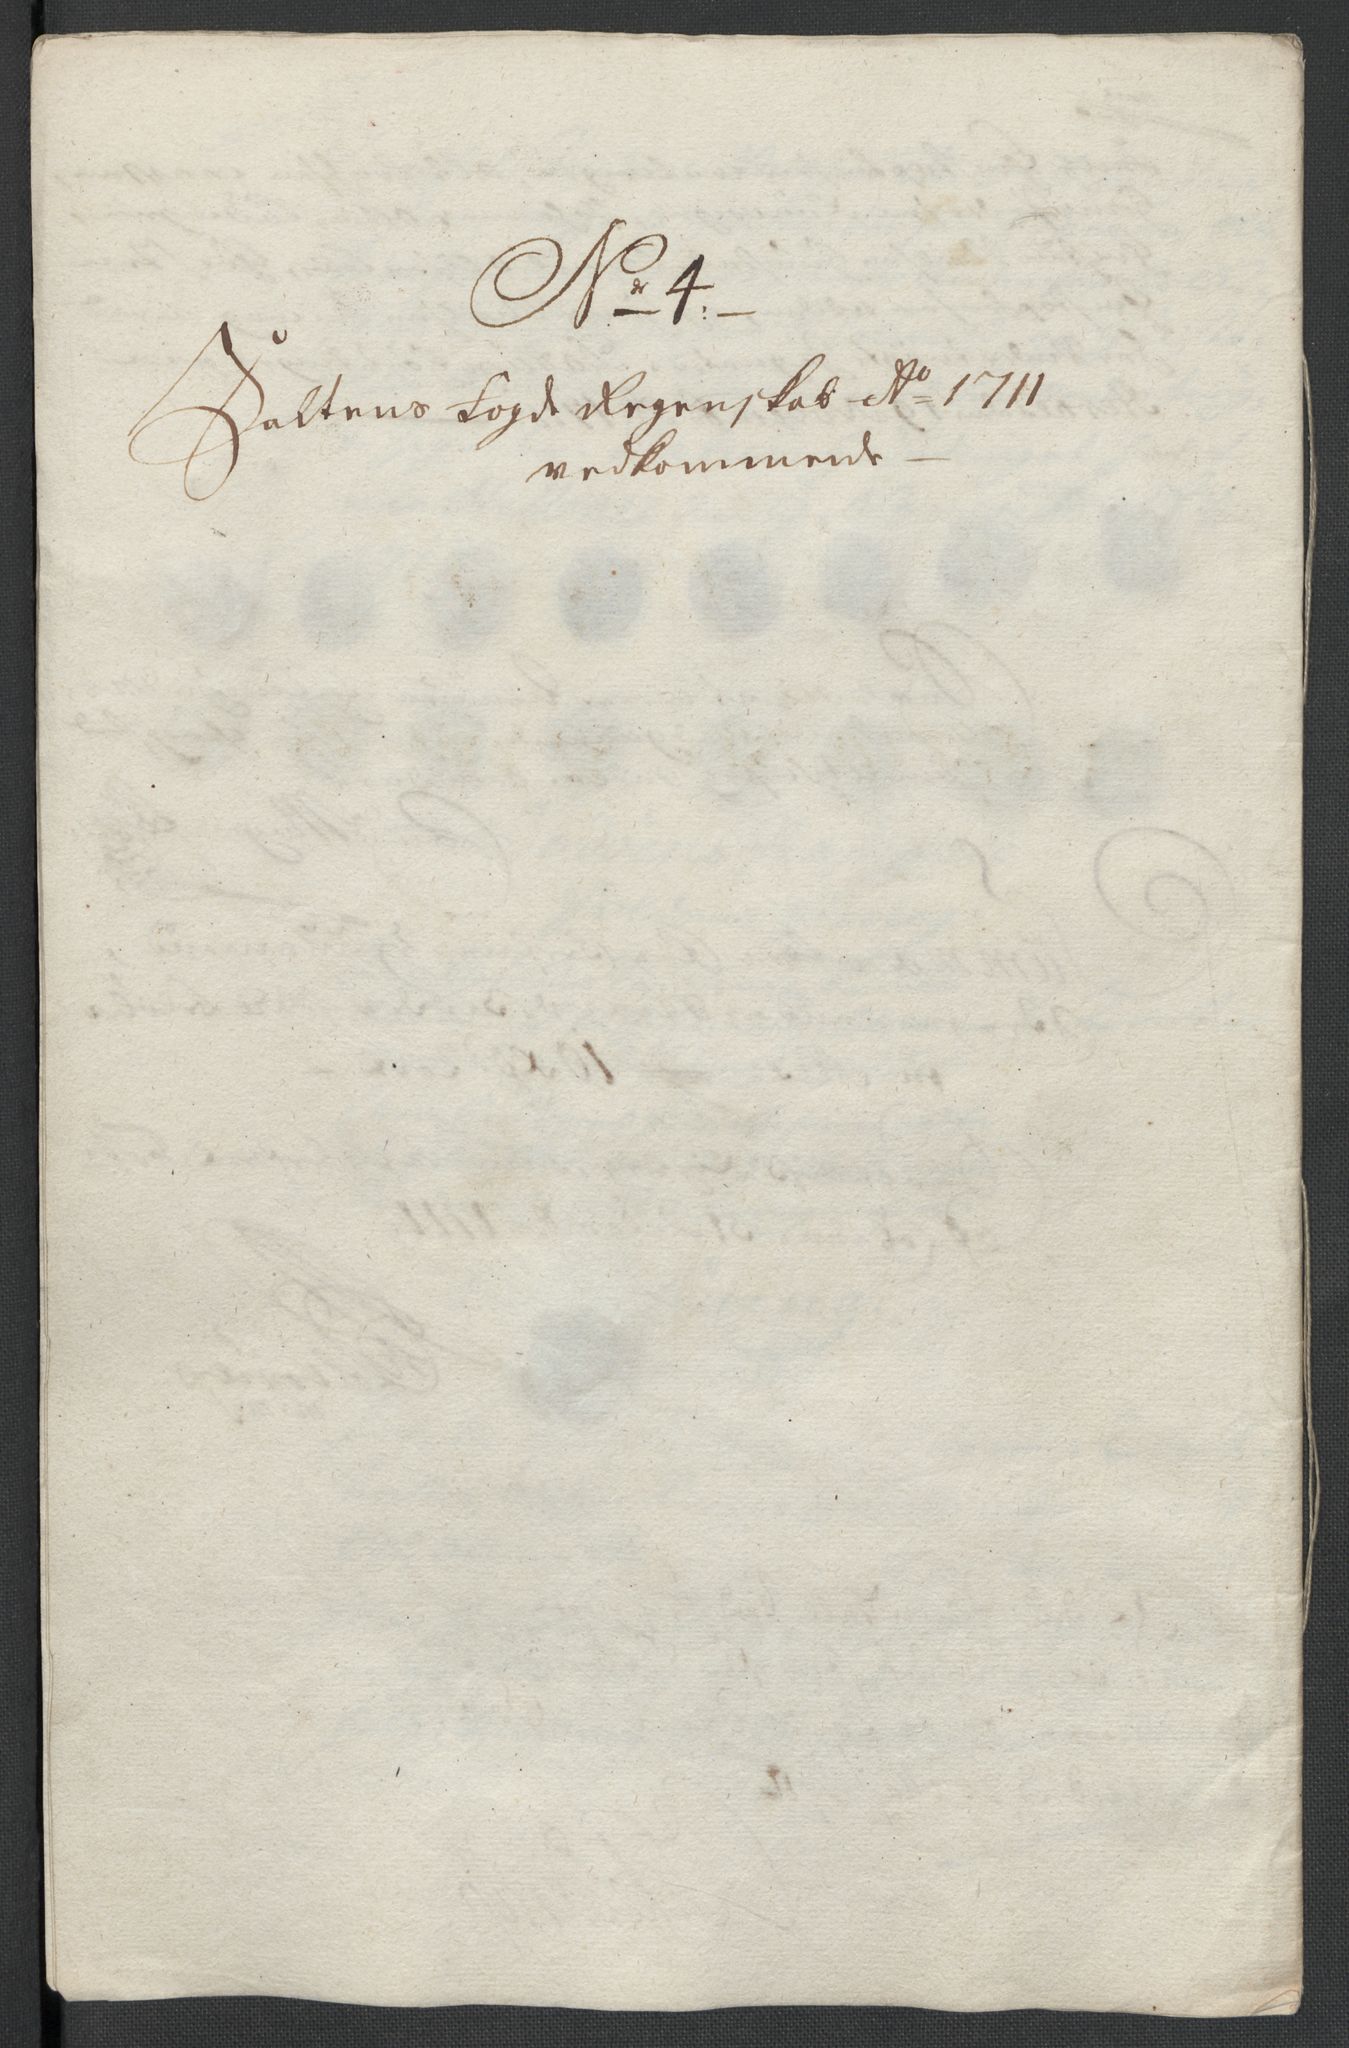 Nr 4:
Saltens Fogde Regenskab Ao 1711
vedkommende